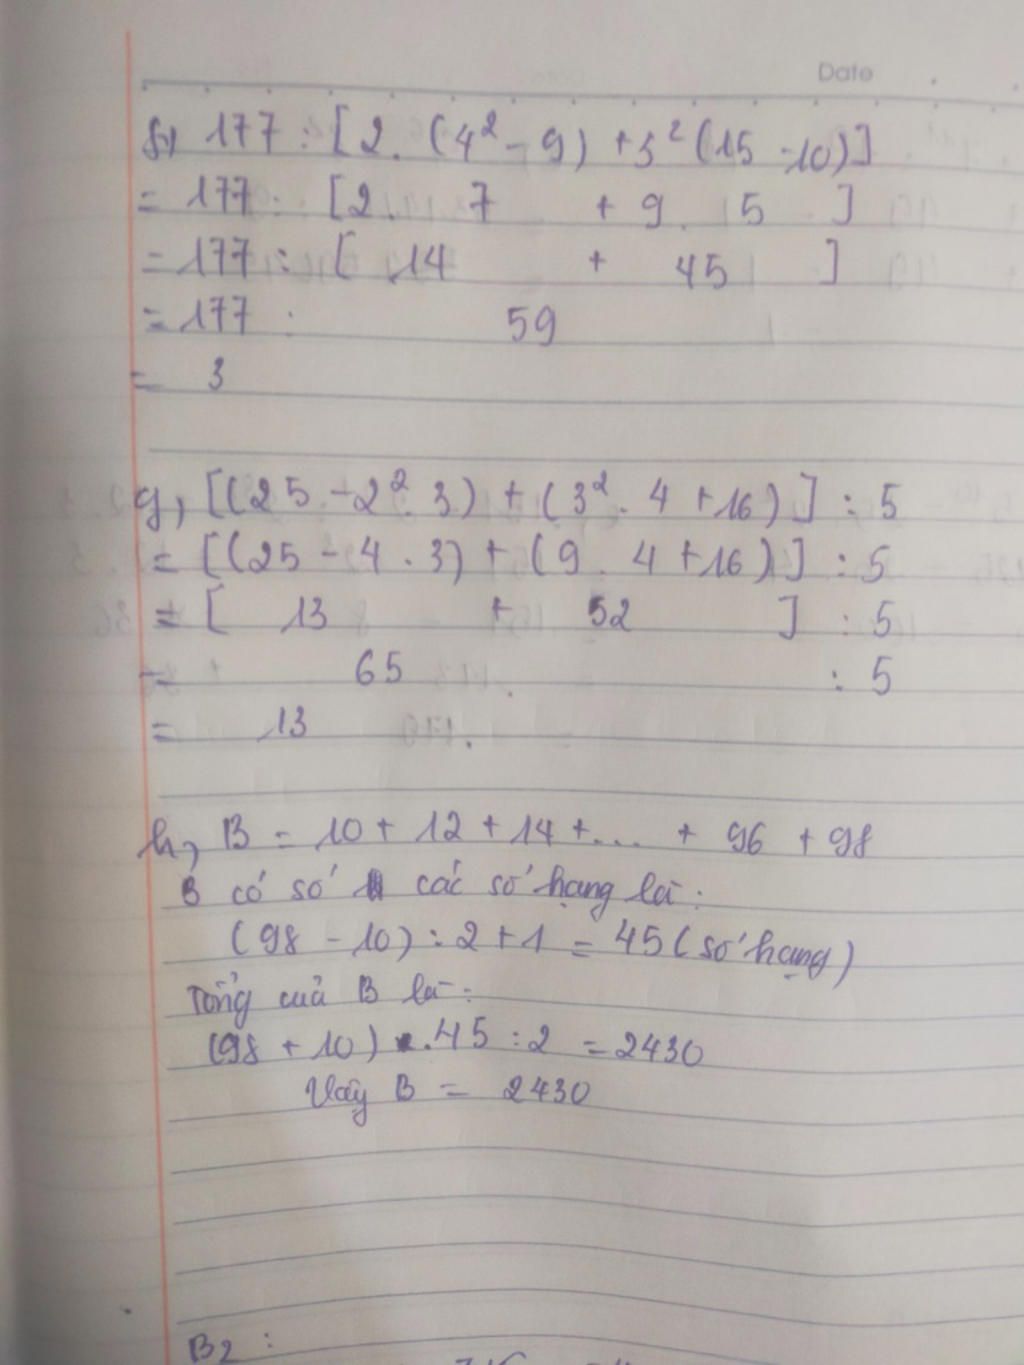 Date
f, 177 : [2. (4² - 9) + 3² (15 - 10)]
= 177 : [2. 7 + 9 . 5 ]
= 177 : [ 14 + 45 ]
= 177 : 59
= 3
g, [(25 - 2² . 3) + (3² . 4 + 16)] : 5
= [(25 - 4 . 3) + (9 . 4 + 16)] : 5
= [ 13 + 52 ] : 5
= 65 : 5
= 13
h, B = 10 + 12 + 14 + ... + 96 + 98
B có số các số hạng là :
(98 - 10) : 2 + 1 = 45 (số hạng)
Tổng của B là :
(98 + 10) . 45 : 2 = 2430
Vậy B = 2430
B2 :